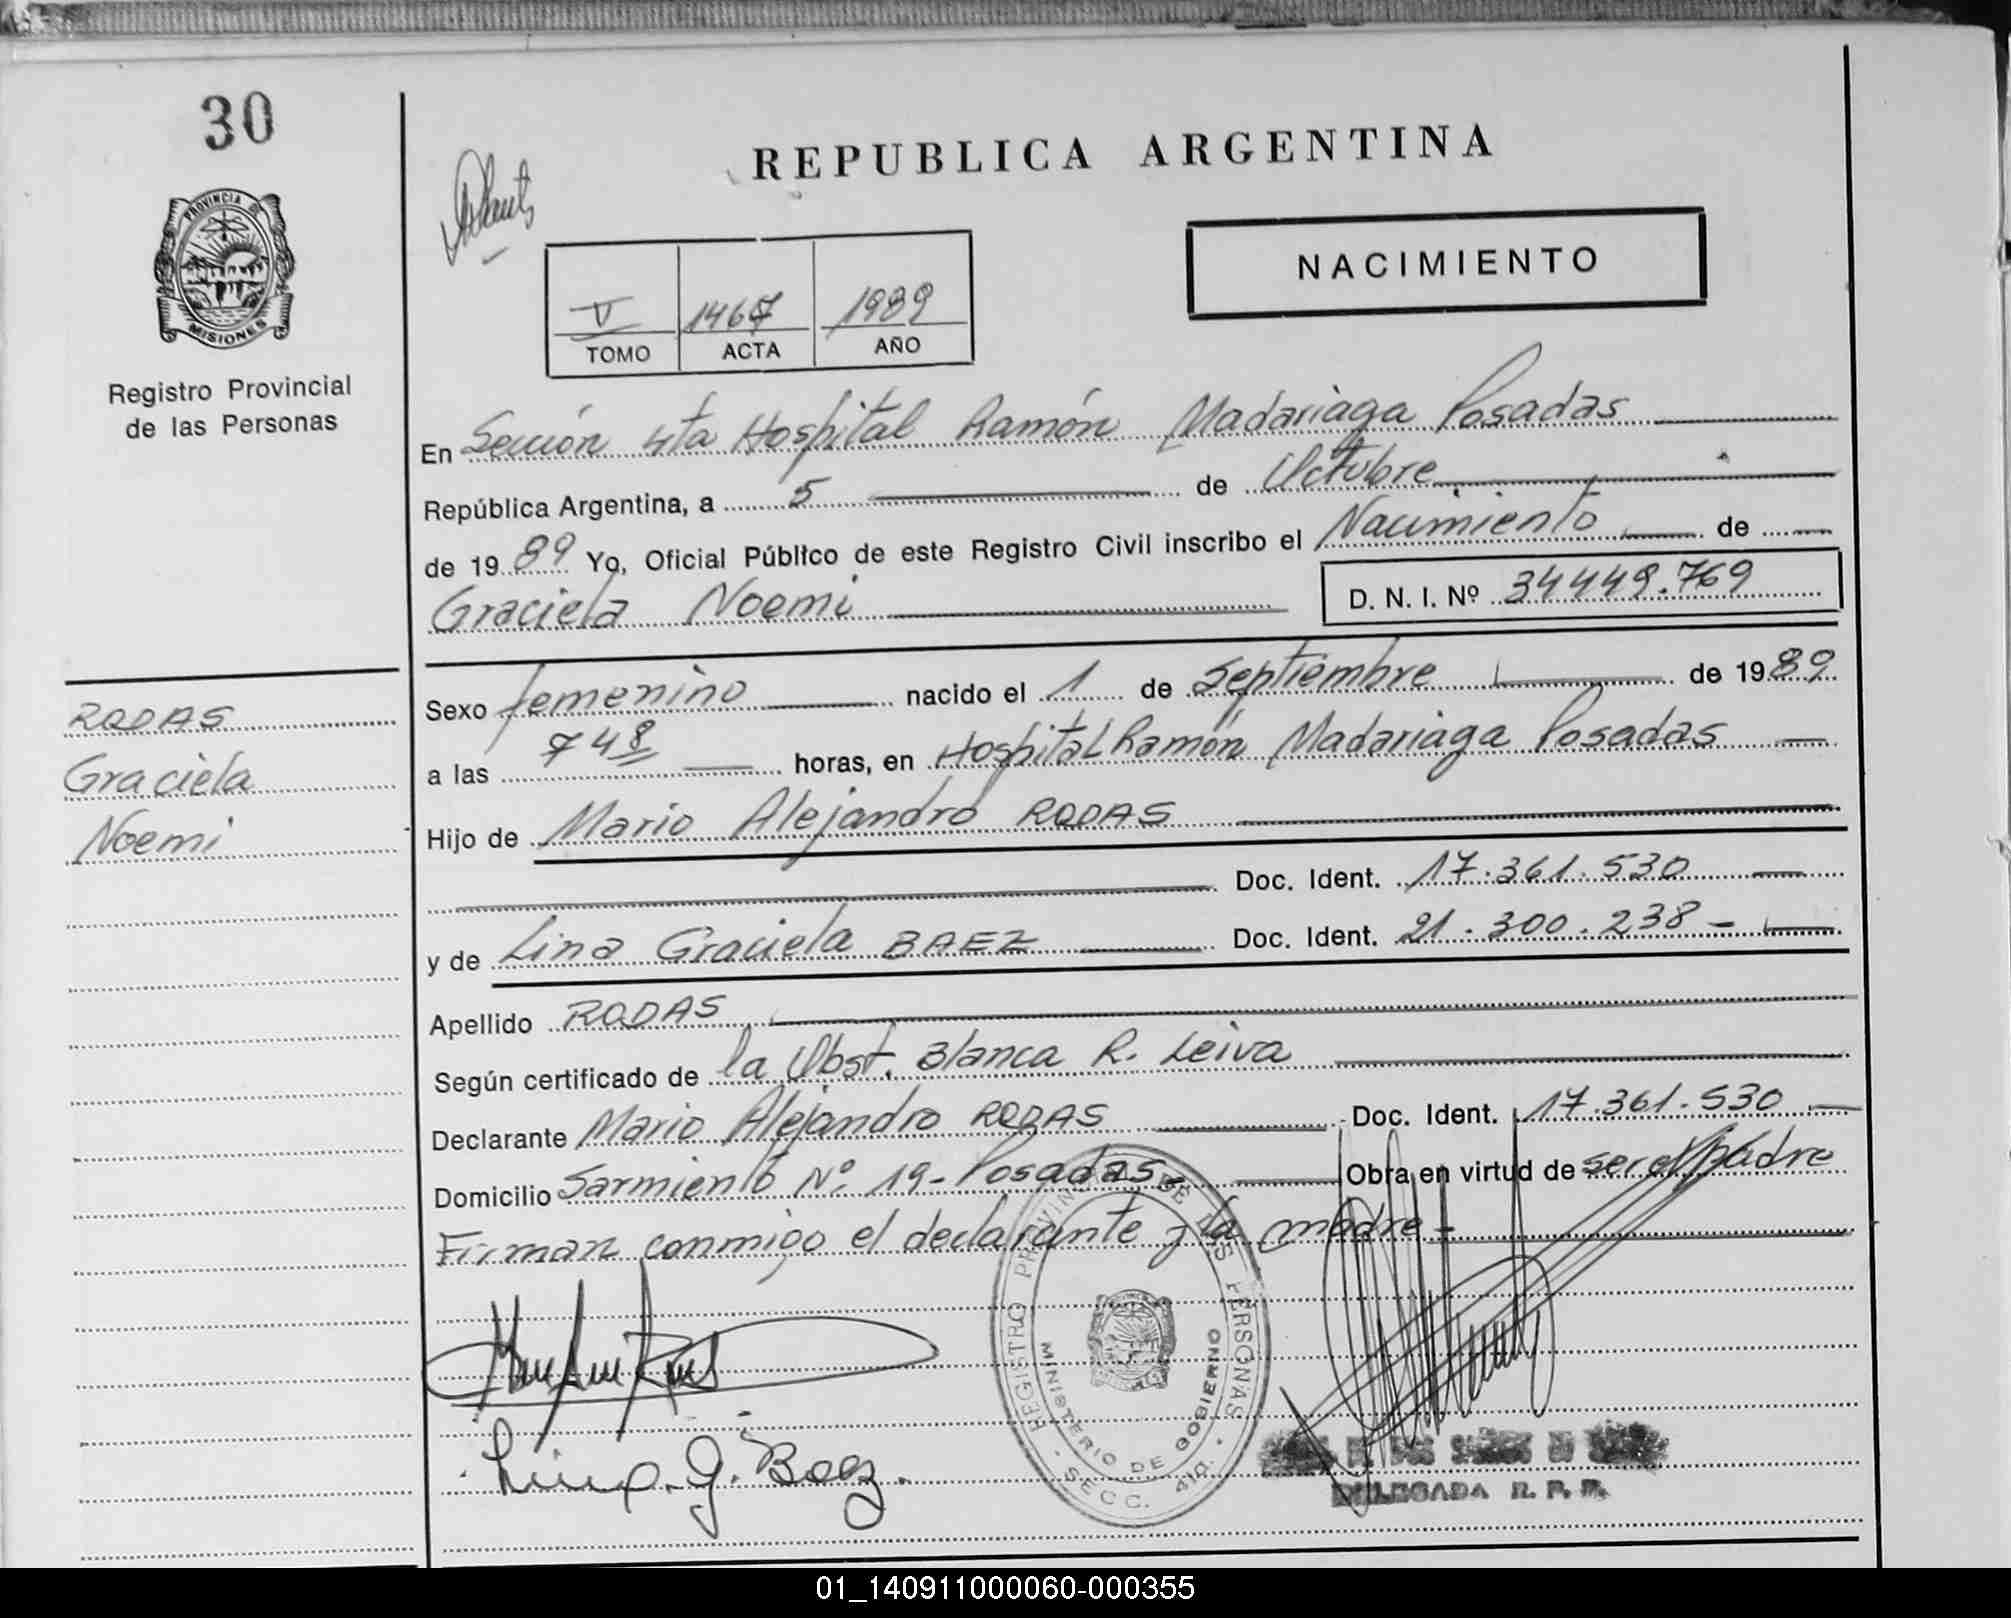 30
REPUBLICA ARGENTINA
PROVINCIA DE
MISIONES
Registro Provincial
de las Personas
NACIMIENTO
V 1467 1989
TOMO ACTA AÑO
En Sección 4ta Hospital Ramón Madariaga Posadas
República Argentina, a 5 de Octubre
de 1989 Yo, Oficial Público de este Registro Civil inscribo el Nacimiento de
Graciela Noemi
D. N. I. Nº 34449.769
RODAS
Graciela
Noemi
Sexo femenino nacido el 1 de Septiembre de 1989
a las 7 48 horas, en Hospital Ramón Madariaga Posadas
Hijo de Mario Alejandro RODAS
Doc. Ident. 17.361.530
y de Lina Graciela BAEZ Doc. Ident. 21.300.238 -
Apellido RODAS
Según certificado de la Obst. Blanca R. Leiva
Declarante Mario Alejandro RODAS Doc. Ident. 17.361.530
Domicilio Sarmiento Nº 19- Posadas- Obra en virtud de ser el padre
Firman conmigo el declarante y la madre-
REGISTRO PROVINCIAL DE LAS PERSONAS
MINISTERIO DE GOBIERNO
SECC. 4ta.
Lina. G. Baez.
DELEGADA R. P. P.
01_140911000060-000355